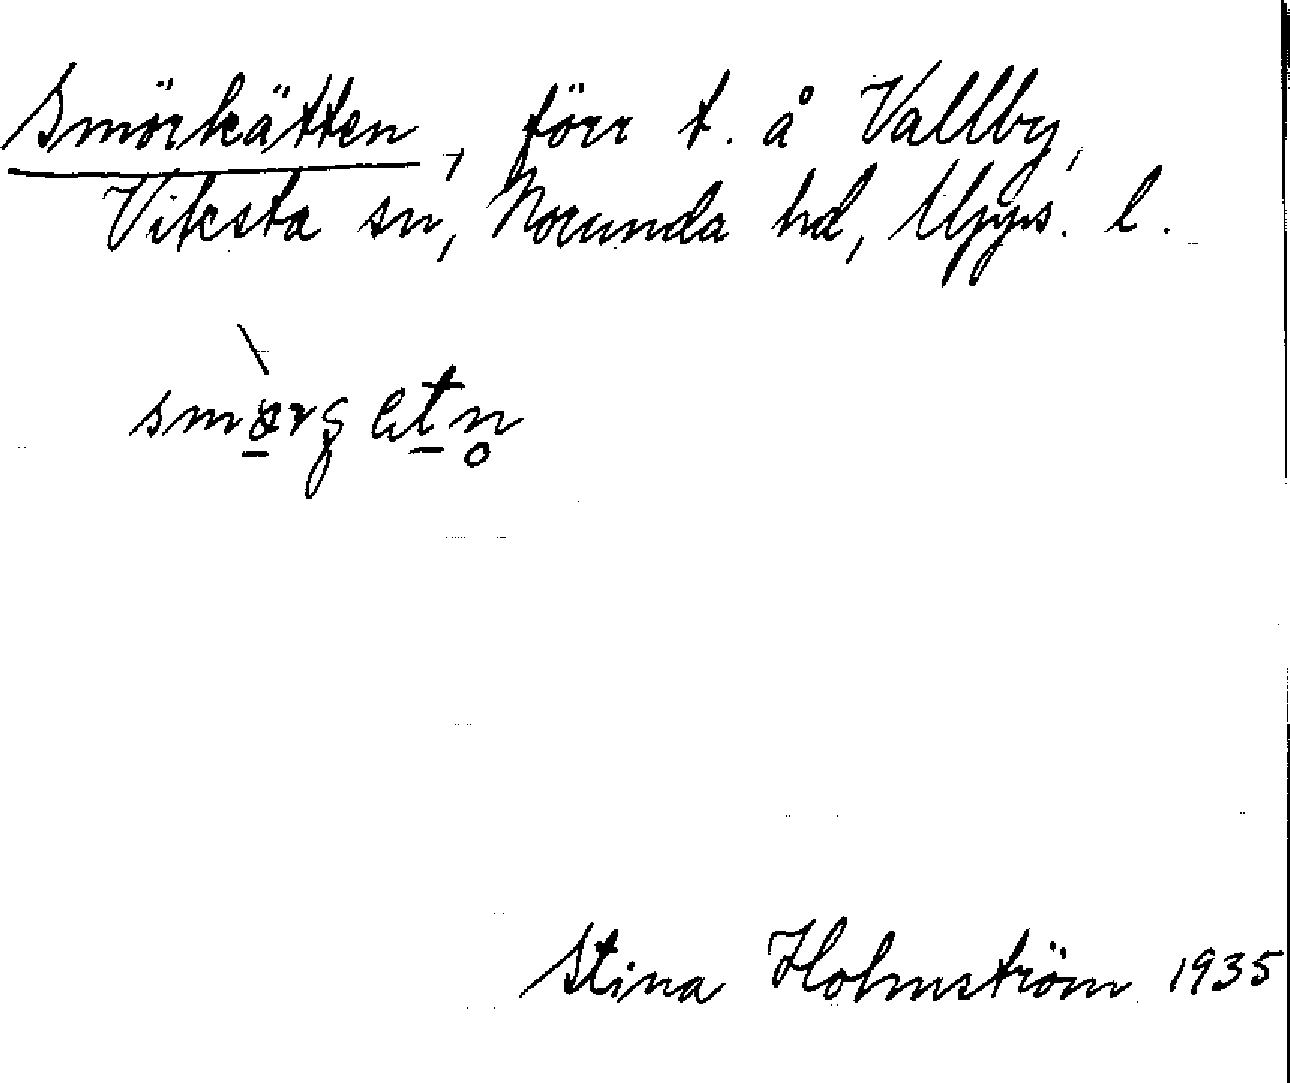 Smörkätten, förr t. å Vallby,
Viksta sn, Norunda hd, Upps. l.
Stina Holmström 1935